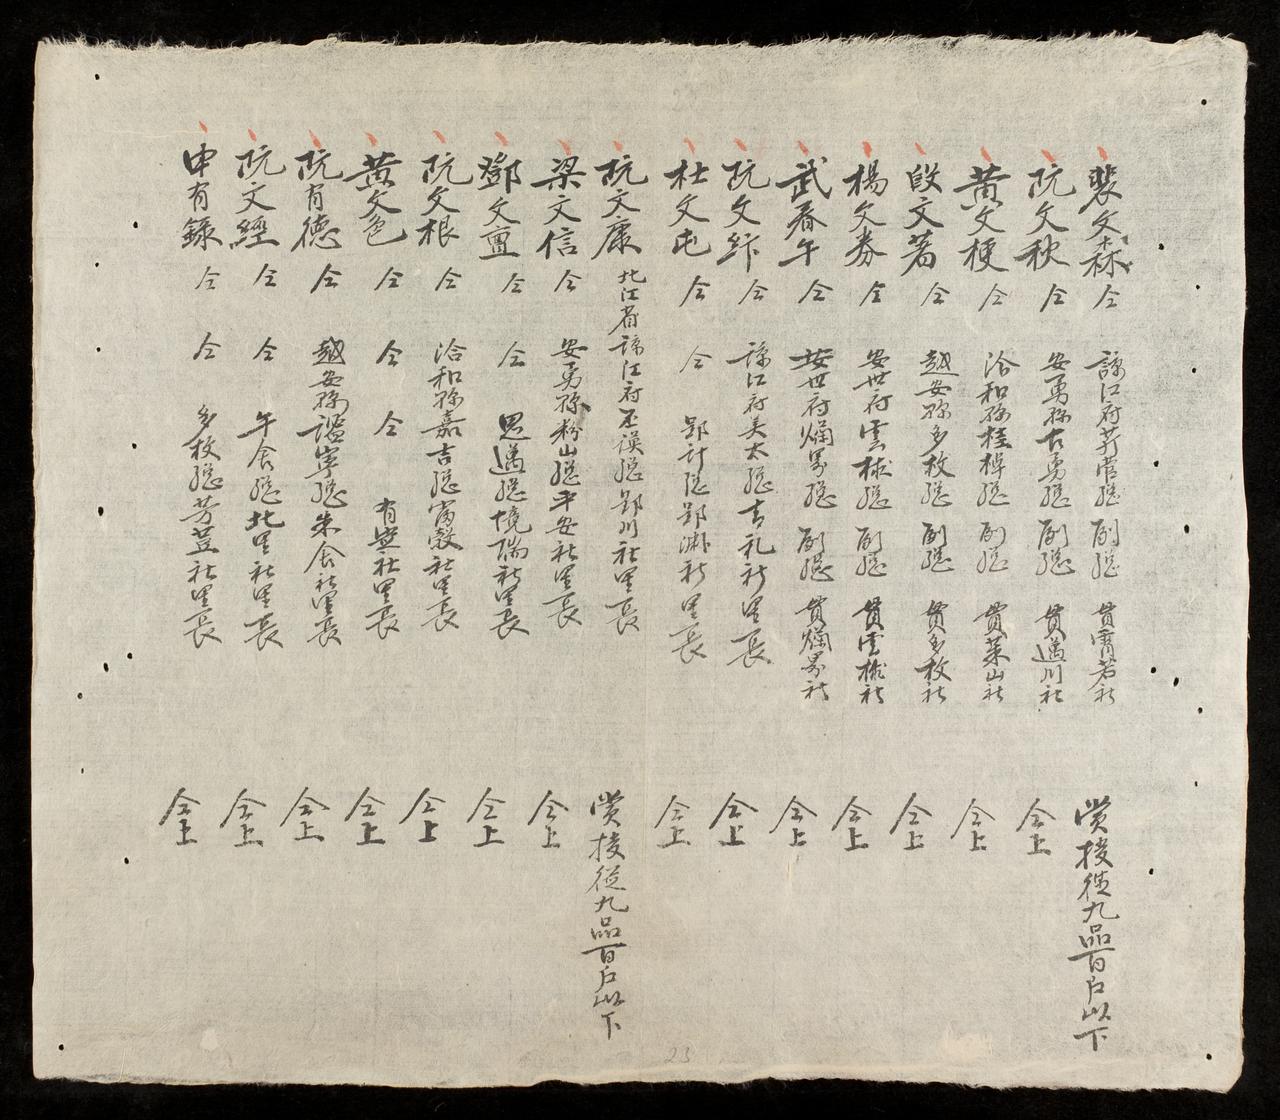 裴文森 仝 諒江府芳菅總 副總 貫霄若社 賞授從九品百户以下
阮文秋 仝 安勇縣古勇總 副總 貫邁川社 仝上
黄文梗 仝 洽和縣桂棹總 副總 貫萊山社 仝上
段文著 仝 越安縣多枚總 副總 貫多枚社 仝上
楊文券 仝 安世府雲梂總 副總 貫雲梂社 仝上
武春午 仝 安世府爛畧總 副總 貫爛畧社 仝上
阮文綷 仝 諒江府美太總吉礼社里長 仝上
杜文屯 仝 仝 郢計總郢洲社里長 仝上
阮文康 北江省諒江府丕謨總郢川社里長 賞授從九品百户以下
梁文信 仝 安勇縣粉山總平安社里長 仝上
鄧文亶 仝 仝 思邁總境瑞社里長 仝上
阮文根 仝 洽和縣嘉吉總富穀社里長 仝上
黄文色 仝 仝 仝 社里長 仝上
阮有德 仝 越安縣謐寧總朱舍社里長 仝上
阮文經 仝 仝 午舍總北里社里長 仝上
申有錄 仝 仝 多枚總芳荳社里長 仝上
23